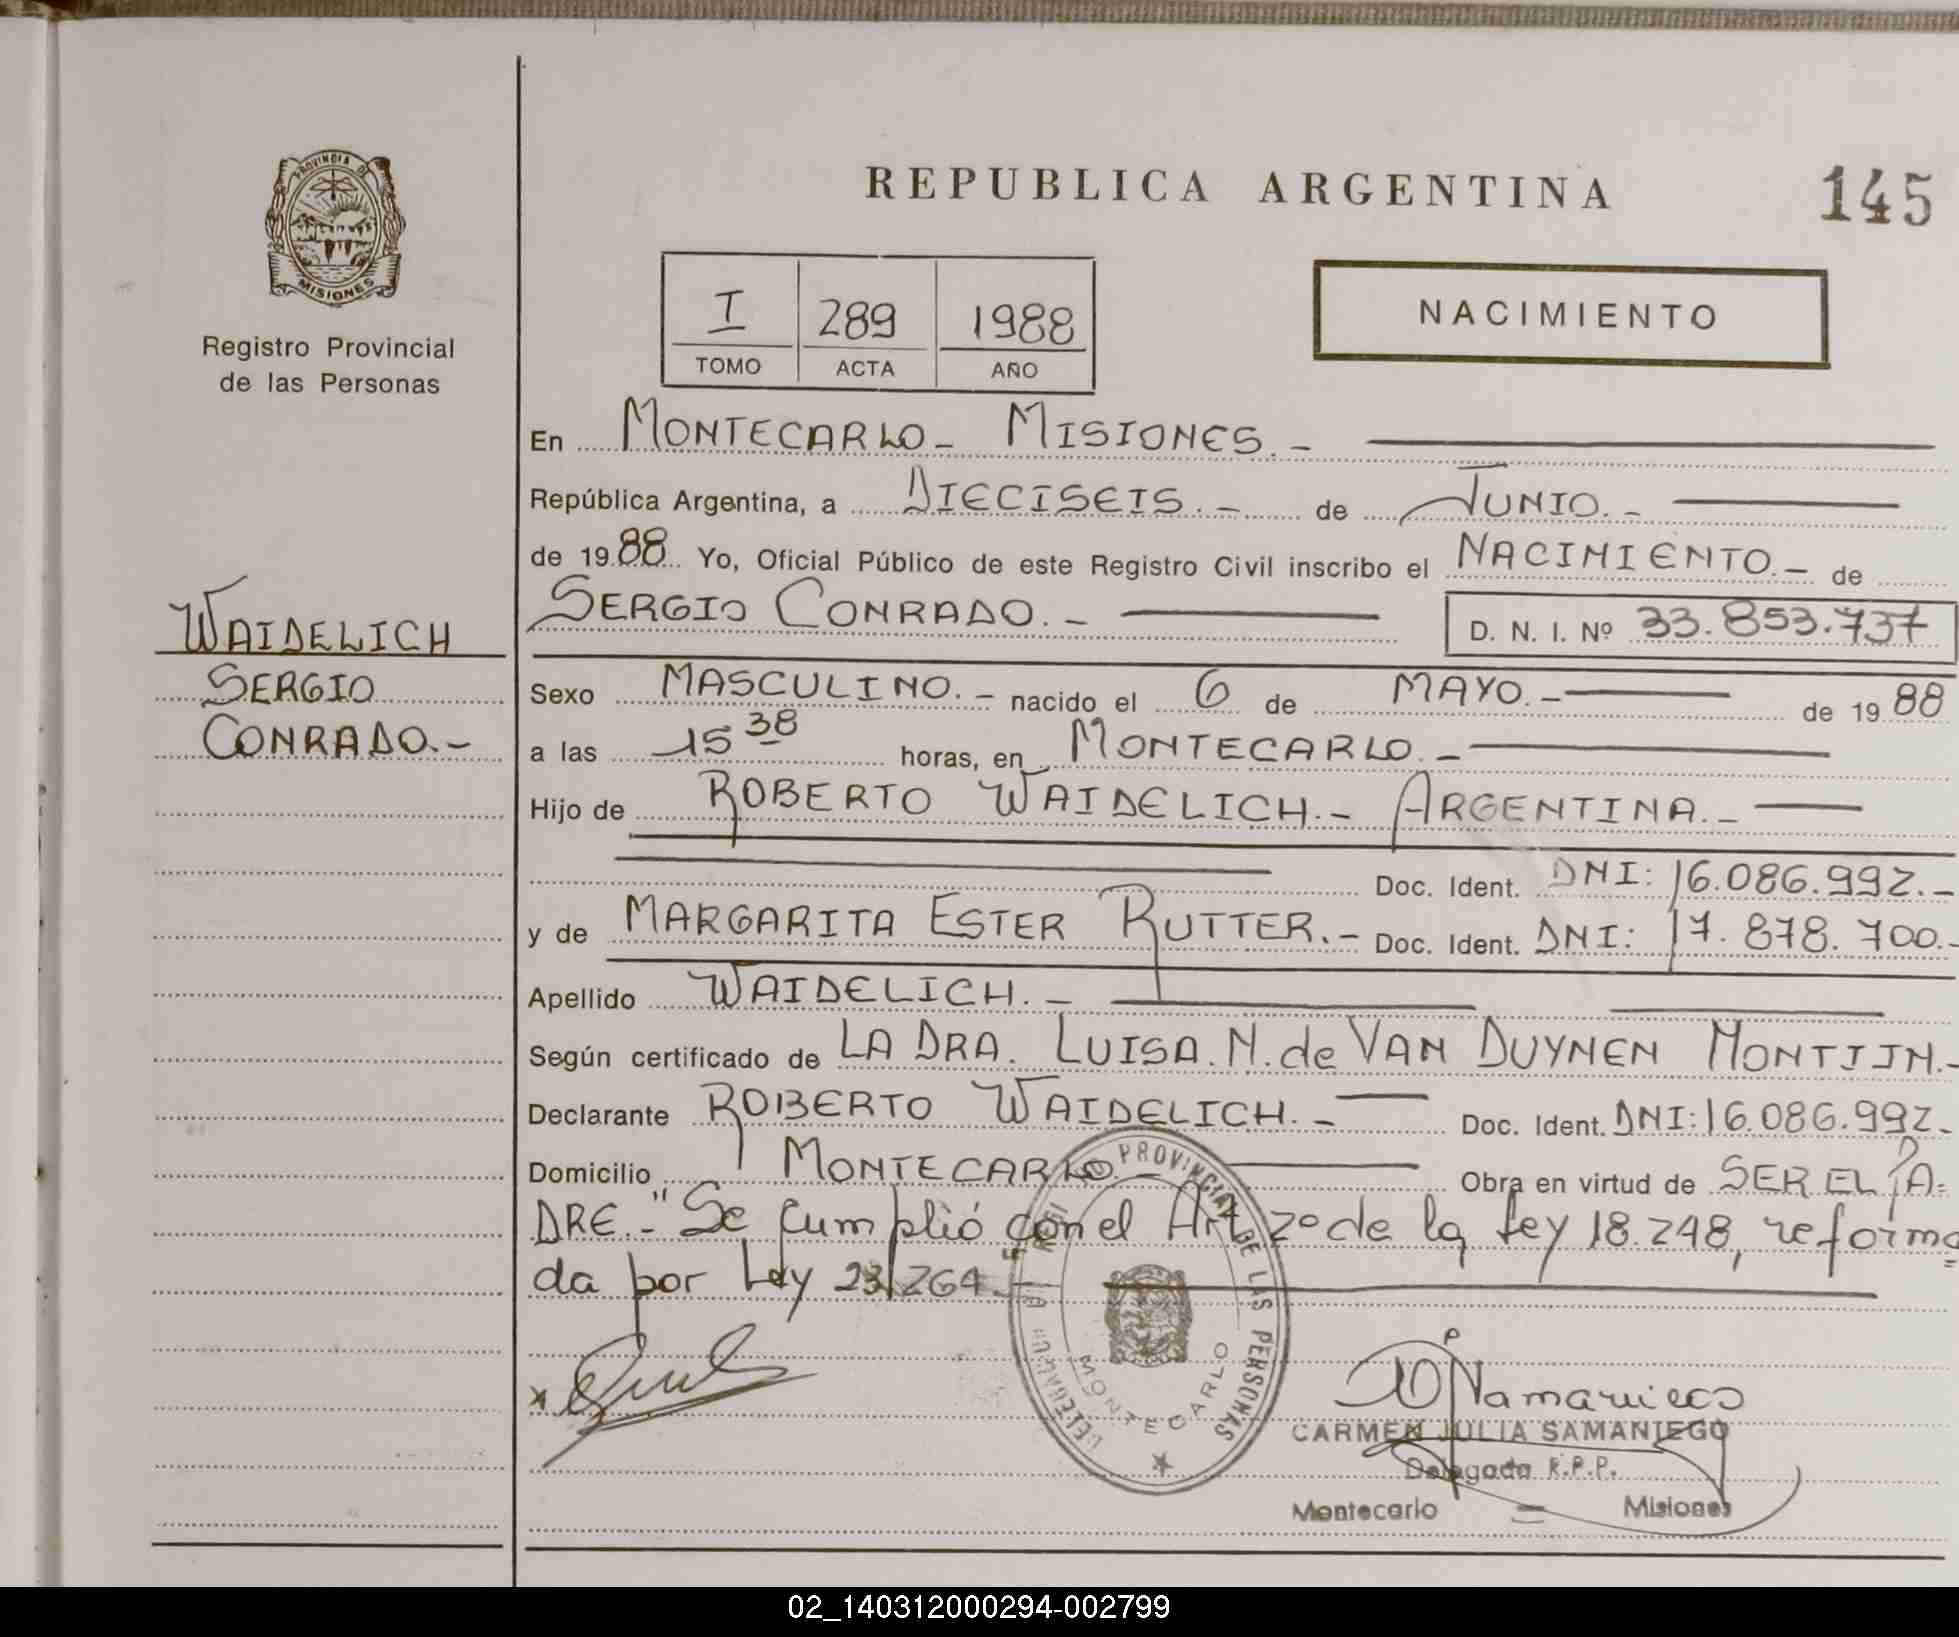 PROVINCIA DE
MISIONES
Registro Provincial
de las Personas
WAIDELICH
SERGIO
CONRADO.-
REPUBLICA ARGENTINA
145
I 289 1988
TOMO ACTA AÑO
NACIMIENTO
En MONTECARLO- MISIONES.-
República Argentina, a DIECISEIS.- de JUNIO.-
de 1988 Yo, Oficial Público de este Registro Civil inscribo el NACIMIENTO.- de
SERGIO CONRADO.- D. N. I. Nº 33.853.737
Sexo MASCULINO.- nacido el 6 de MAYO.- de 1988
a las 15 38 horas, en MONTECARLO.-
Hijo de ROBERTO WAIDELICH.- ARGENTINA.-
Doc. Ident. DNI: 16.086.992.-
y de MARGARITA ESTER RUTTER.- Doc. Ident. DNI: 17.878.700.-
Apellido WAIDELICH.-
Según certificado de LA DRA. LUISA.M.de VAN DUYNEN MONTIJN.-
Declarante ROBERTO WAIDELICH.- Doc. Ident. DNI:16.086.992.-
Domicilio MONTECARLO.- Obra en virtud de SER EL PA=
DRE.-"Se cumplió con el Art 2º de la Ley 18.248, reforma=
da por Ley 23/264.-
PROVINCIAL DE LAS PERSONAS
MONTECARLO
CARMEN JULIA SAMANIEGO
Delegada R.P.P.
Montecarlo = Misiones
02_140312000294-002799